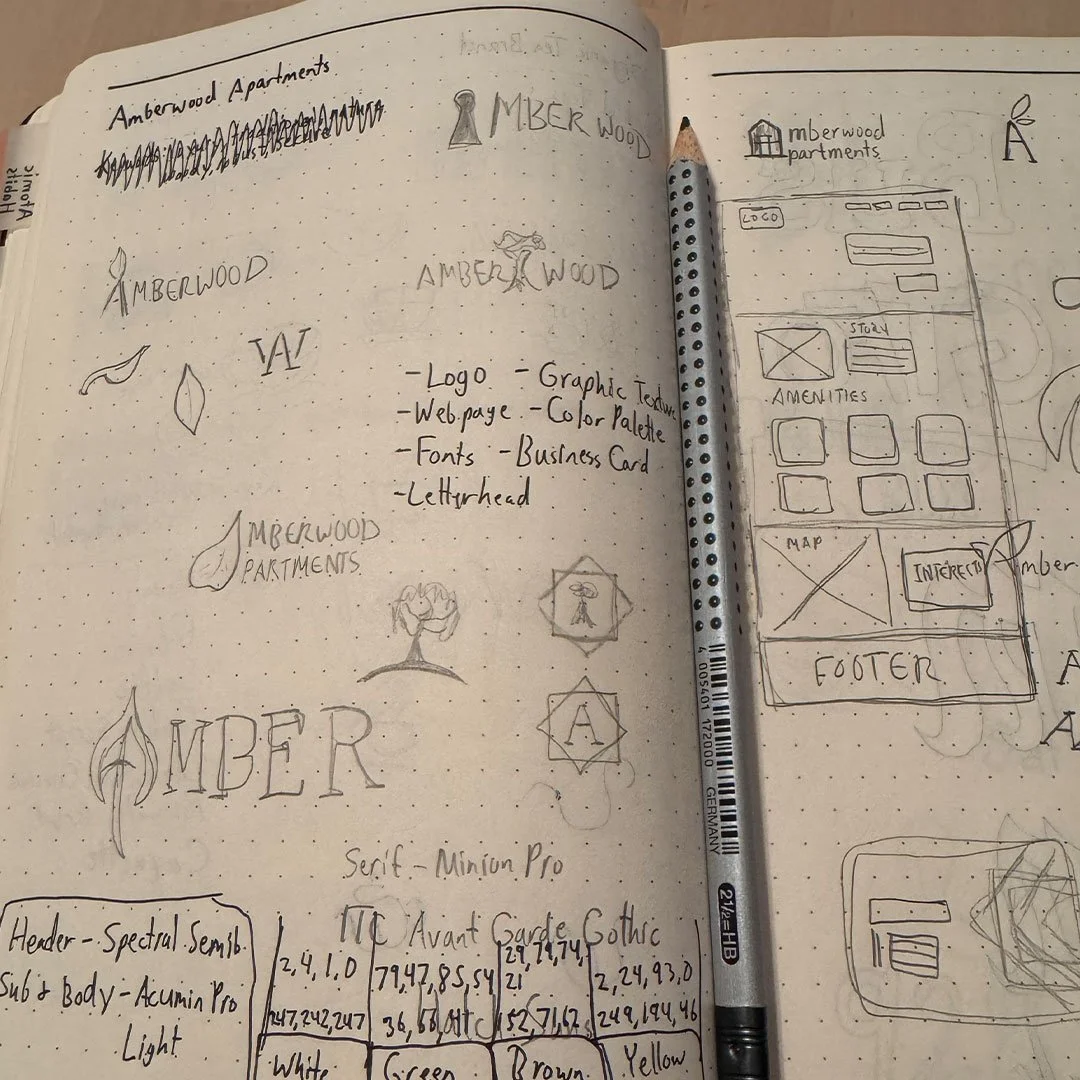 Amberwood Apartments
MBER WOOD
AMBERWOOD
AMBER WOOD
W
- Logo - Graphic Texture
- Web page - Color Palette
- Fonts - Business Card
- Letterhead
MBERWOOD
PARTMENTS
A
AMBER
Serif - Minion Pro
ITC Avant Garde Gothic
Header - Spectral Semib.
Sub & Body - Acumin Pro
Light
2,4,1,0
247,242,247
White
79,47,85,54
Green
29,79,74,
21
152,71,62
Brown
2,24,93,0
249,194,46
Yellow
mberwood
partments
A
LOGO
STORY
AMENITIES
MAP
INTERECTS
Amber
FOOTER
A
A
Atomic
Habits
4 005401 172000
GERMANY
2 1/2=HB